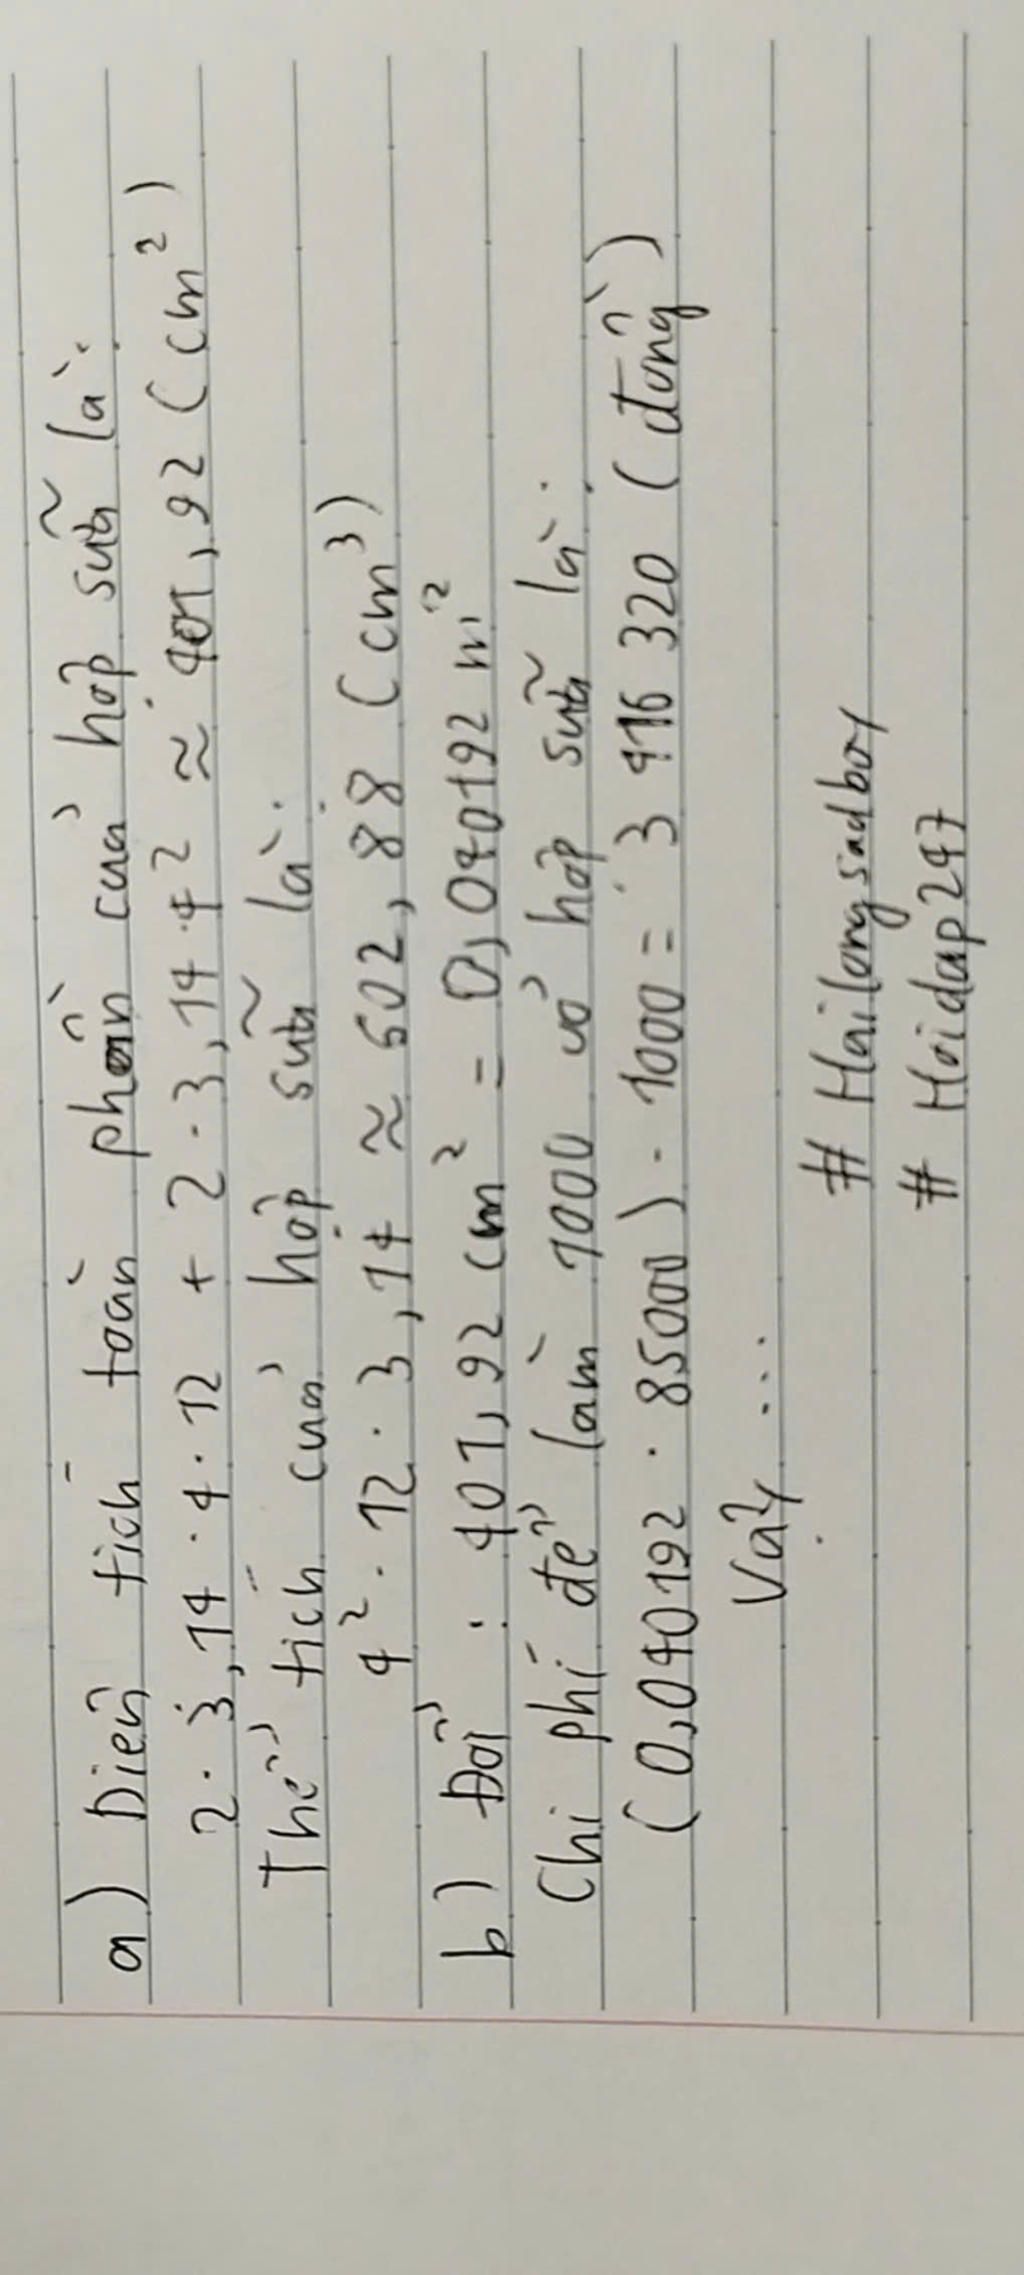 a) Diện tích toàn phần của hộp sữa là:
2 . 3,14 . 4 . 12 + 2 . 3,14 . 4² ≈ 401,92 (cm²)
Thể tích của hộp sữa là:
4² . 12 . 3,14 ≈ 602,88 (cm³)
b) Đổi : 401,92 cm² = 0,040192 m²
Chi phí để làm 1000 vỏ hộp sữa là:
(0,040192 . 85000) . 1000 = 3 416 320 (đồng)
Vậy ...
# Hailongsadboy
# Hoidap247